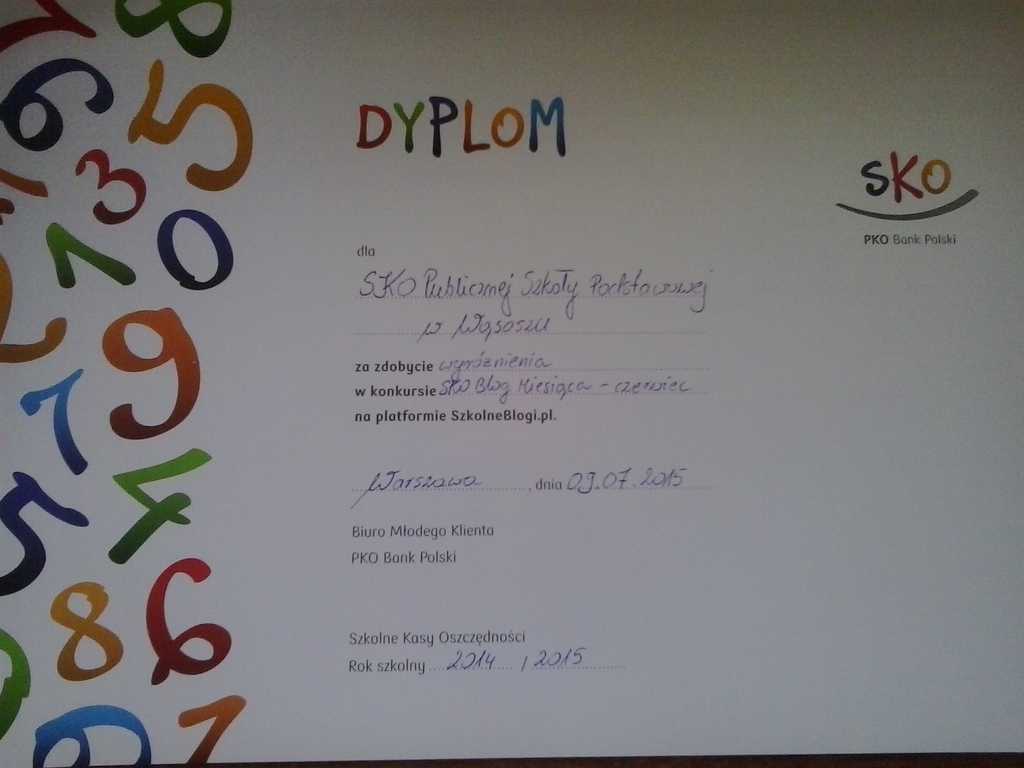 DYPLOM
SKO
PKO Bank Polski
dla
SKO Publicznej Szkoły Podstawowej
w Wąsoszu
za zdobycie wyróżnienia
w konkursie SKO Blog Miesiąca - czerwiec
na platformie SzkolneBlogi.pl.
Warszawa, dnia 09.07.2015
Biuro Młodego Klienta
PKO Bank Polski
Szkolne Kasy Oszczędności
Rok szkolny 2014 / 2015